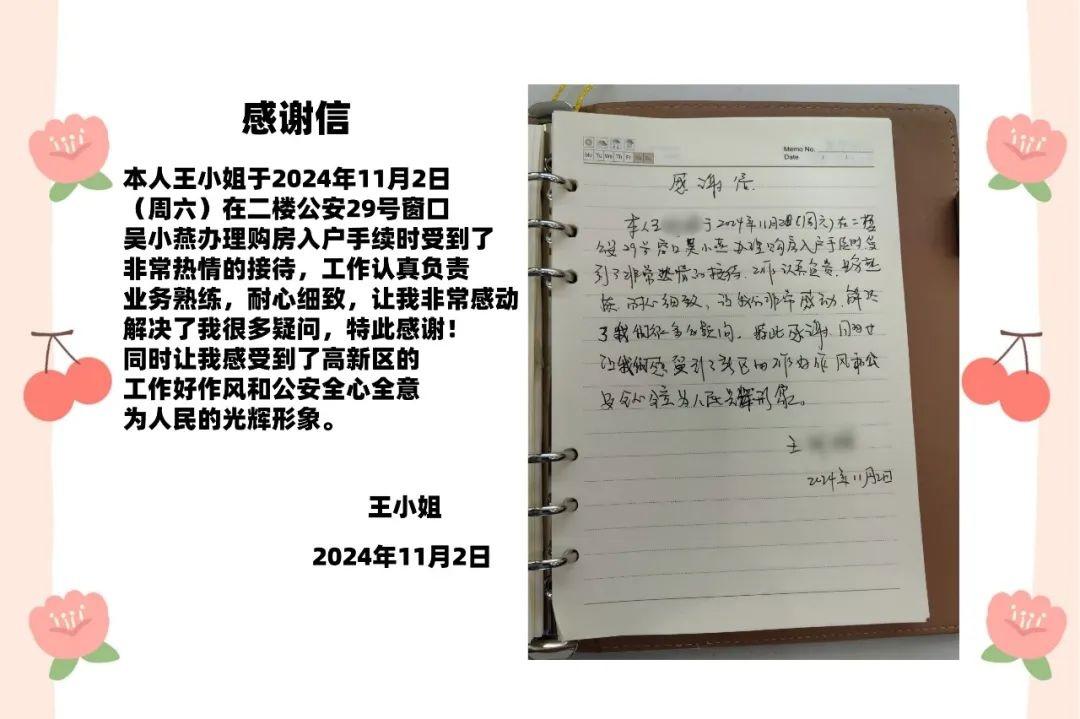 感谢信
本人王小姐于2024年11月2日
（周六）在二楼公安29号窗口
吴小燕办理购房入户手续时受到了
非常热情的接待，工作认真负责
业务熟练，耐心细致，让我非常感动
解决了我很多疑问，特此感谢！
同时让我感受到了高新区的
工作好作风和公安全心全意
为人民的光辉形象。
王小姐
2024年11月2日
Memo No.
Mo Tu We Th Fr Sa Su
Date
感谢信
本人王 于2024年11月2日(周六)在二楼
公安29号窗口吴小燕办理购房入户手续时受
到了非常热情的接待，工作认真负责，业务熟
练，耐心细致，让我们非常感动，解决
了我们很多的疑问，特此感谢，同时
让我们感受到了高新区的工作好作风和公
安全心全意为人民光辉形象。
王
2024年11月2日